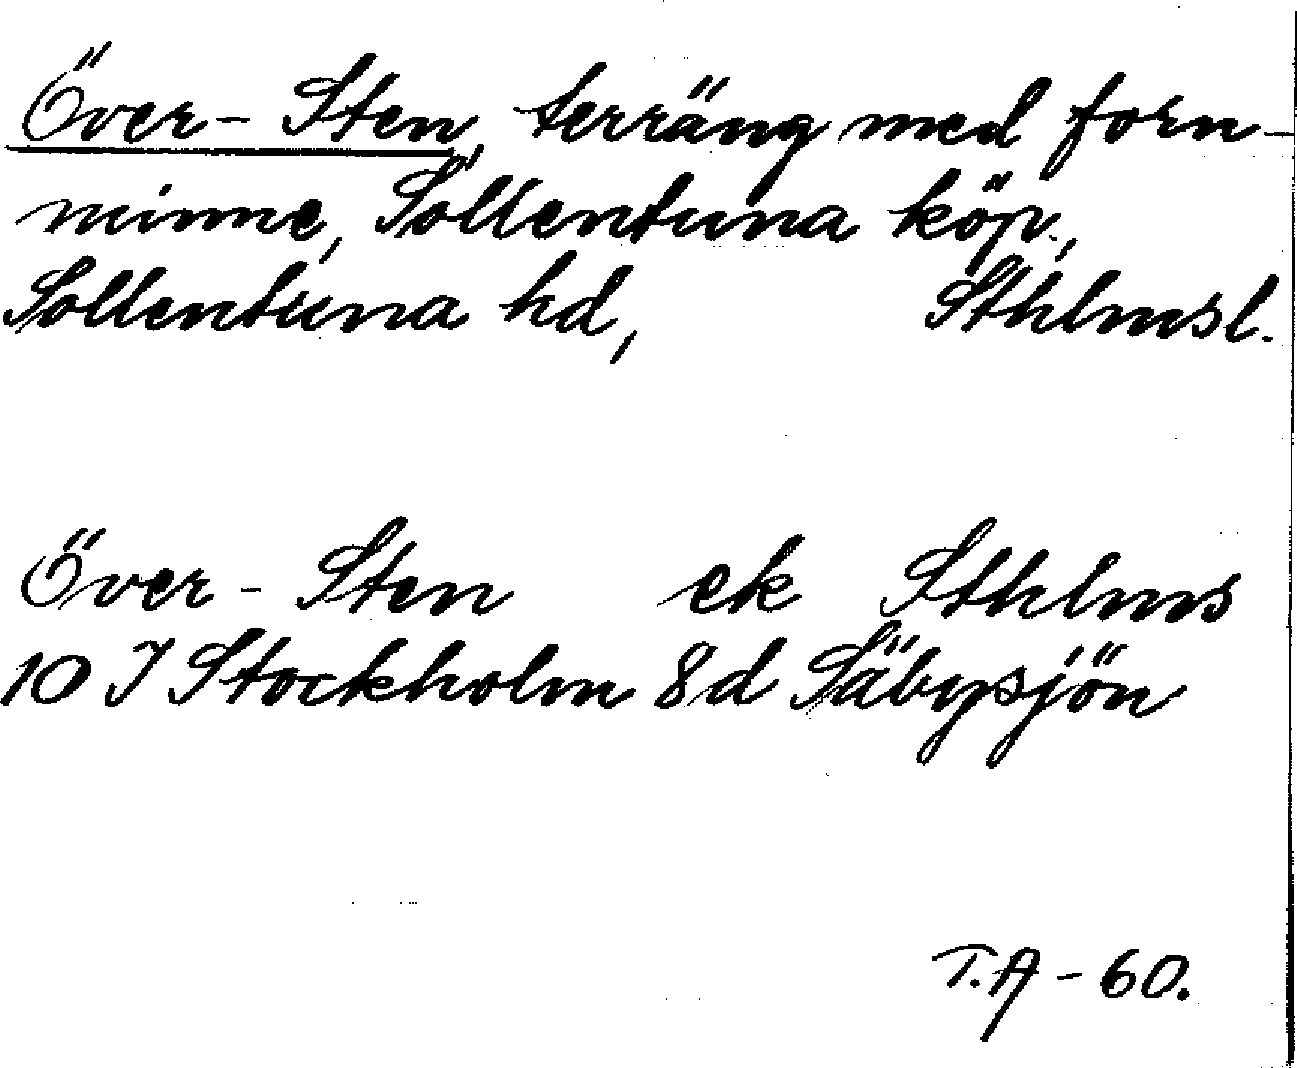 Över-Sten, terräng med forn-
minne, Sollentuna köp.,
Sollentuna hd, Sthlmsl.
Över-Sten ek Sthlms
10 I Stockholm 8d Säbysjön
T.A-60.